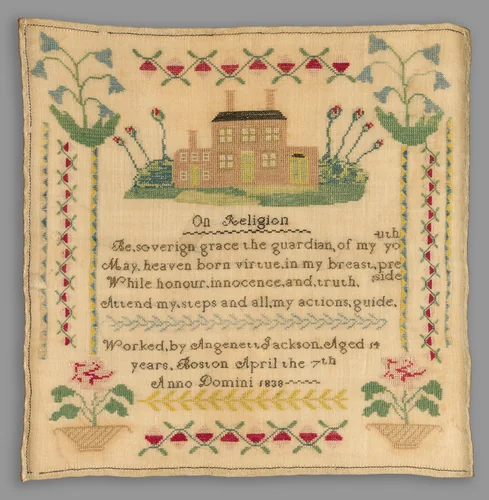 On Religion
Be, soverign grace the guardian, of my youth
May, heaven born virtue, in my breast, preside
While honour, innocence, and, truth,
Attend my, steps and all, my actions, guide,
Worked, by Angenett Jackson, Aged 14
years, Boston April the 7th
Anno Domini 1838